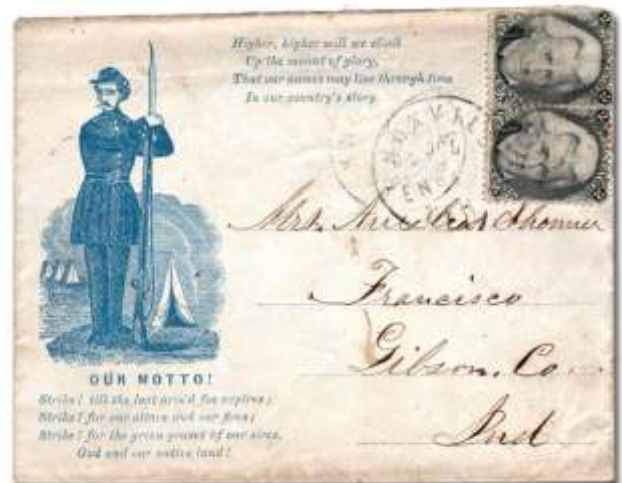 Higher, higher will we climb
Up the mount of glory,
That our names may live through time
In our country's story.
Mrs.
Francisco
Gibson, Co
Ind
OUR MOTTO!
Strike! till the last arm'd foe expires;
Strike! for our altars and our fires;
Strike! for the green graves of our sires,
God and our native land!